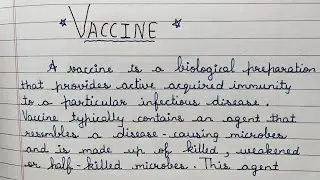 VACCINE
A vaccine is a biological preparation
that provides active acquired immunity
to a particular infectious disease.
Vaccine typically contains an agent that
resembles a disease-causing microbes
and is made up of killed, weakened
or half-killed microbes. This agent